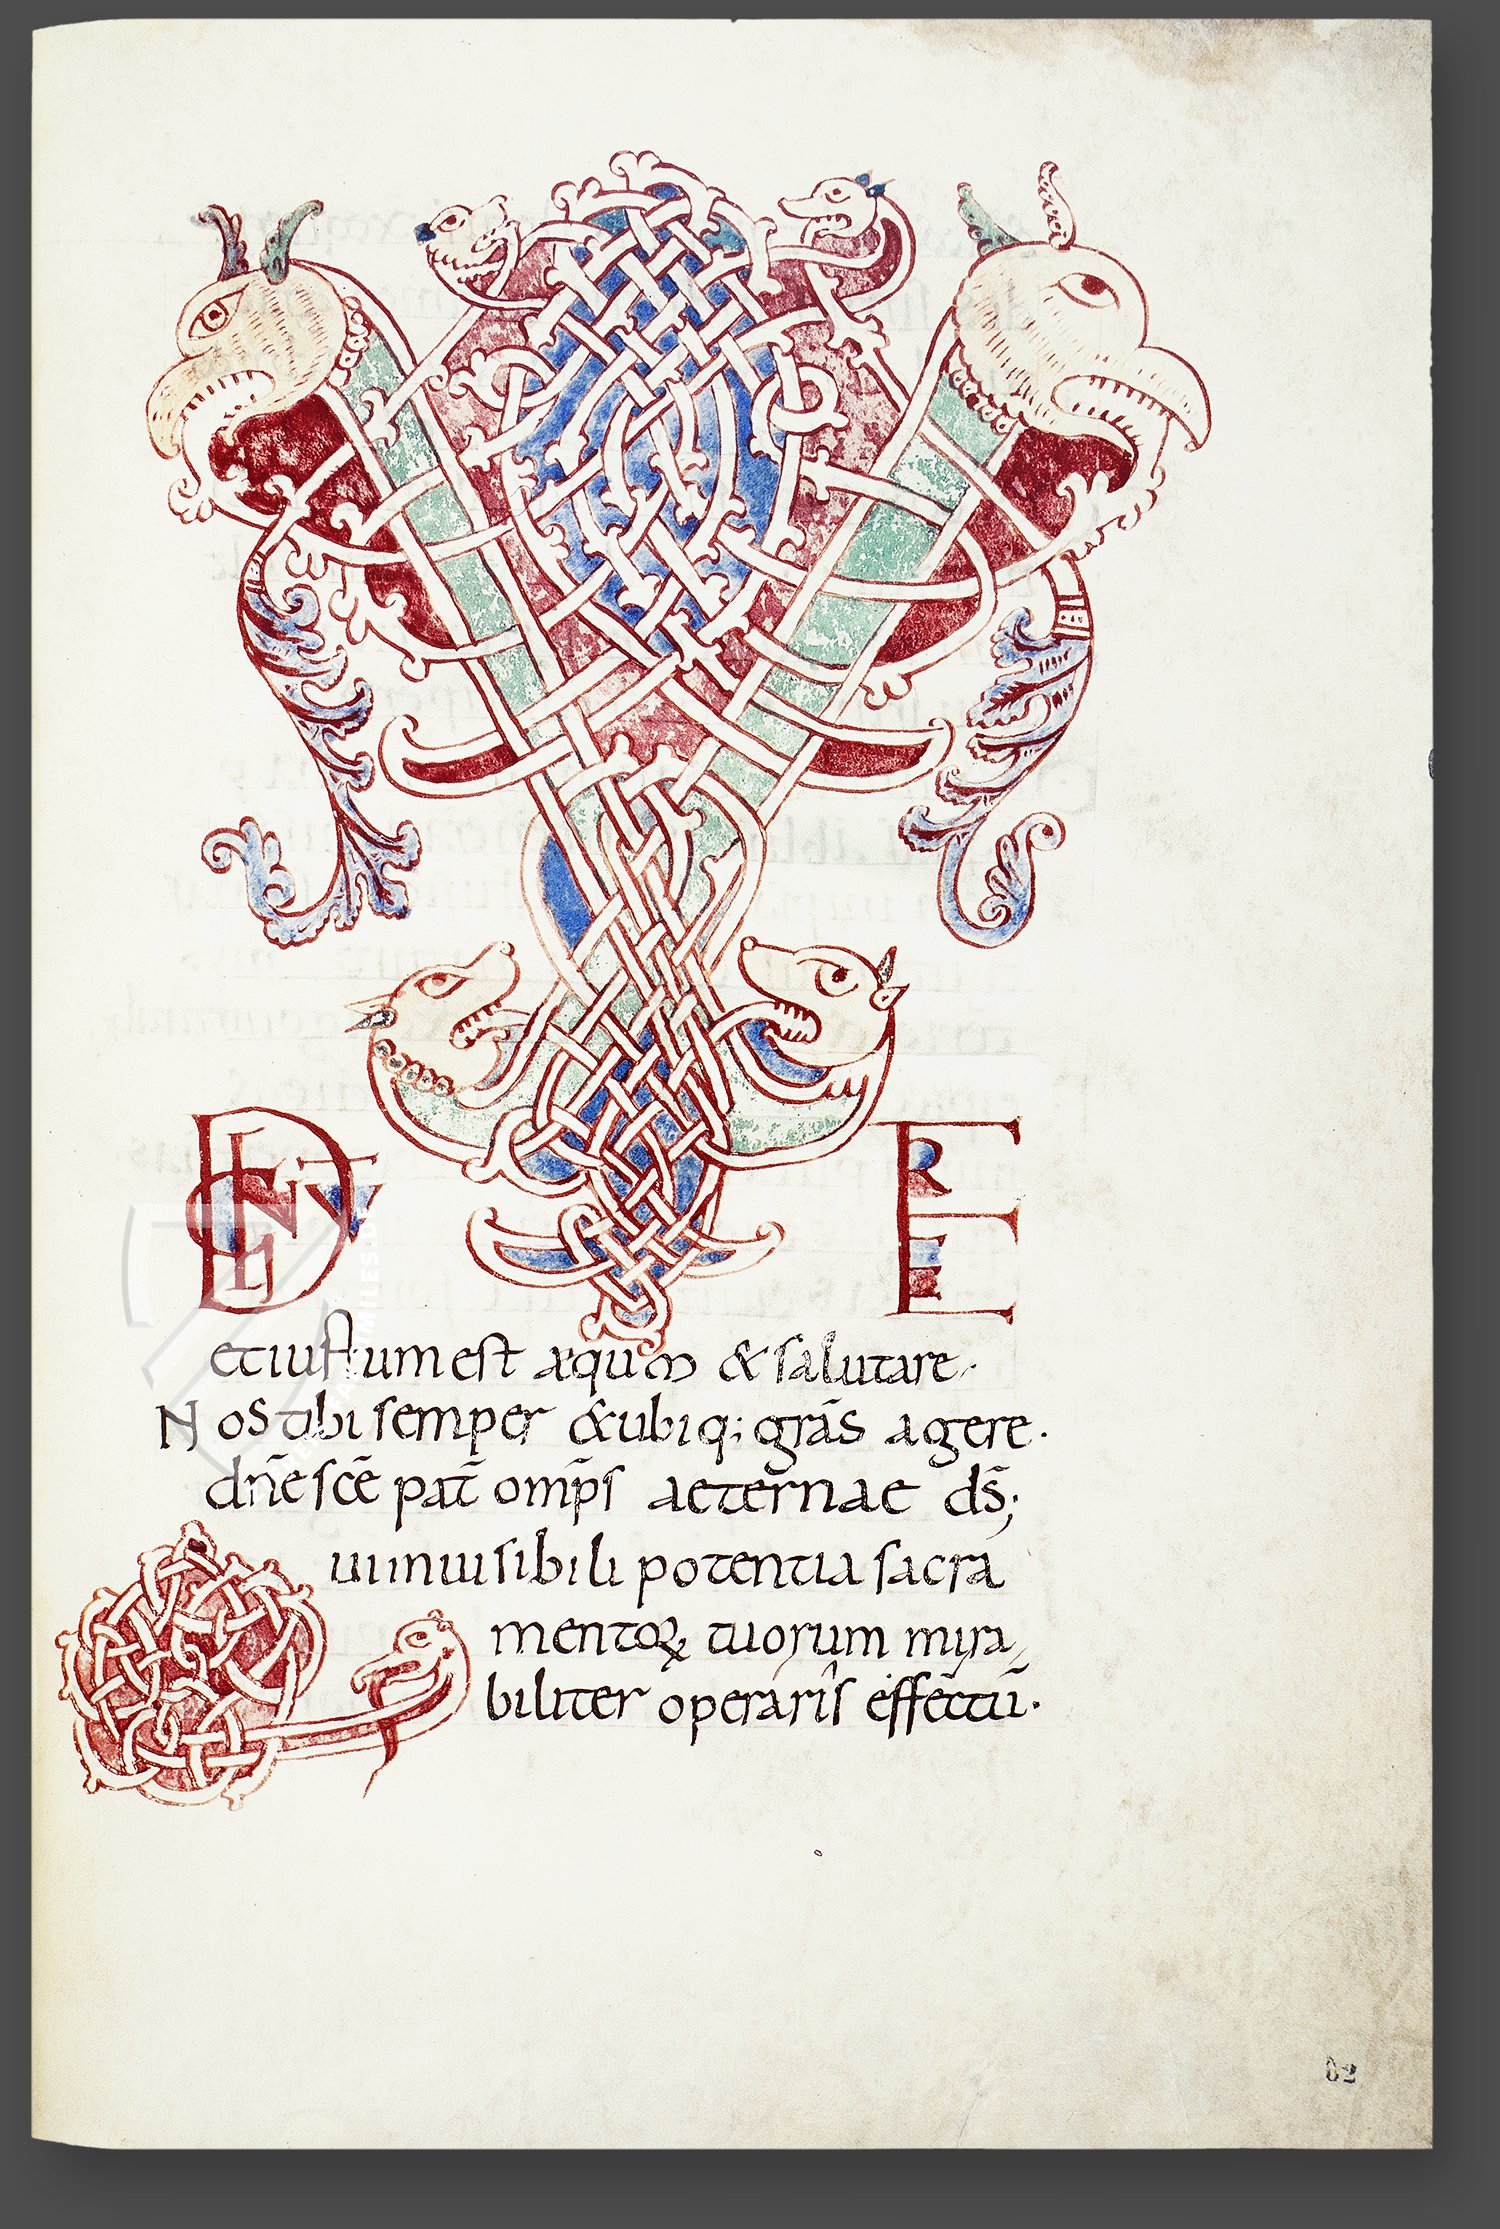 VERE DIGNV
et iustum est æquum & salutare.
Nos tibi semper & ubiq; grās agere.
dn̄e scē pat̄ omp̄s aeternae ds̄;
Qui inuisibili potentia sacra
mentoꝝ tuorum mira
biliter operaris effectū.
62